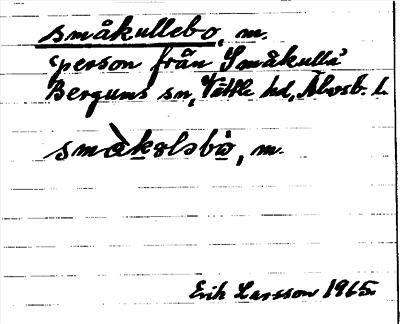 småkullebo, m.
'person från Småkulla'
Bergums sn, Vättle hd, Älvsb. l.
småkəlsbò, m.
Erik Larsson 1965.